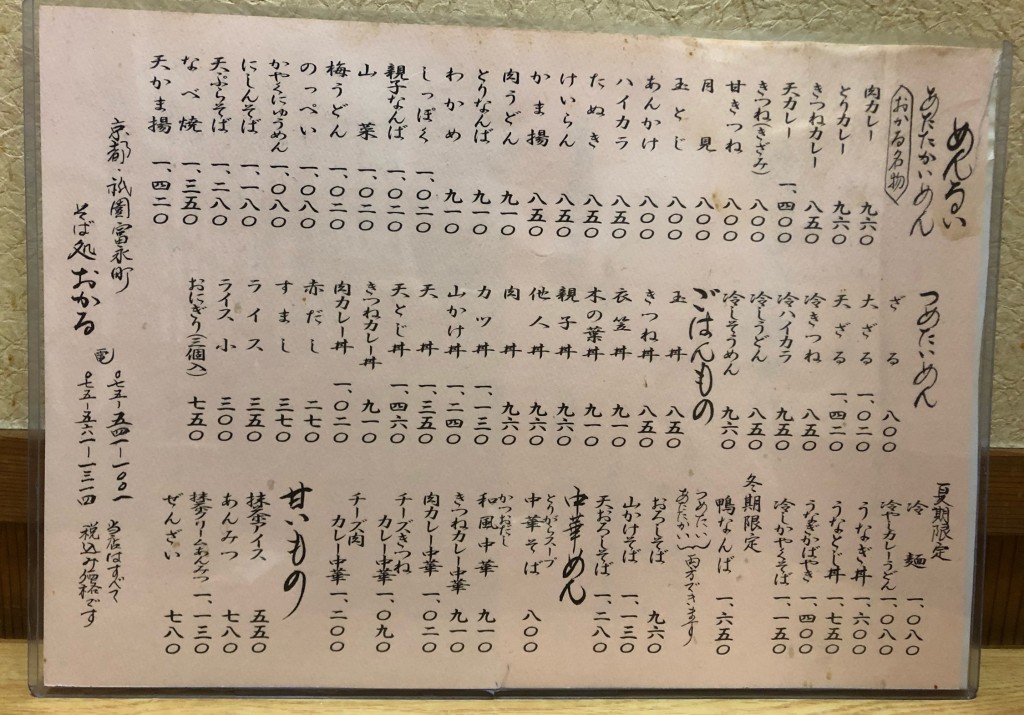 めんるい
あたたかいめん
おかる名物
肉カレー 九六〇
とりカレー 九六〇
きつねカレー 八五〇
天カレー 一、四〇〇
きつね(きざみ) 八〇〇
甘きつね 八〇〇
月見 八〇〇
玉とじ 八〇〇
あんかけ 八〇〇
ハイカラ 八五〇
たぬき 八五〇
けいらん 八五〇
かま揚 八五〇
肉うどん 九一〇
とりなんば 九一〇
わかめ 九一〇
しっぽく 一、〇二〇
親子なんば 一、〇二〇
山菜 一、〇二〇
梅うどん 一、〇二〇
のっぺい 一、〇八〇
かやくにゅうめん 一、〇八〇
にしんそば 一、一八〇
天ぷらそば 一、二八〇
なべ焼 一、三五〇
天かま揚 一、四二〇
つめたいめん
ざる 八〇〇
大ざる 一、〇二〇
天ざる 一、四二〇
冷きつね 八五〇
冷ハイカラ 九五〇
冷しうどん 八五〇
冷しそうめん 九六〇
ごはんもの
玉丼 八五〇
きつね丼 八五〇
衣笠丼 九一〇
木の葉丼 九一〇
親子丼 九六〇
他人丼 九六〇
肉丼 九六〇
カツ丼 一、一三〇
山かけ丼 一、二四〇
天丼 一、三五〇
天とじ丼 一、四六〇
きつねカレー丼 九一〇
肉カレー丼 一、〇二〇
赤だし 二七〇
すまし 三七〇
ライス 三五〇
ライス小 三〇〇
おにぎり(三個入) 七五〇
夏期限定
冷麺 一、〇八〇
冷しカレーうどん 一、〇八〇
うなぎ丼 一、六〇〇
うなとじ丼 一、七五〇
うなぎかばやき 一、四〇〇
冷しかやくそば 一、一五〇
冬期限定
鴨なんば 一、六五〇
つめたい
あたたかい
両方できます
おろしそば 九六〇
山かけそば 一、一三〇
天おろしそば 一、二八〇
中華めん
とりがらスープ
中華そば 八〇〇
かつおだし
和風中華 九一〇
きつねカレー中華 九一〇
肉カレー中華 一、〇二〇
チーズきつね
カレー中華 一、〇九〇
チーズ肉
カレー中華 一、二〇〇
甘いもの
抹茶アイス 五五〇
あんみつ 七八〇
抹茶クリームあんみつ 一、一三〇
ぜんざい 七八〇
京都・祇園富永町
そば処 おかる
電 〇七五-五四一-一〇〇一
〇七五-五六一-一三一四
当店はすべて
税込み価格です